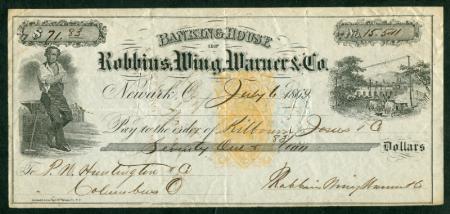 $ 71.83
No. 15.511
BANKING HOUSE
OF
Robbins, Wing, Warner & Co.
Newark, O. July 6 1869
Pay to the order of Kilbourn Jones & Co
Seventy One & 83/100 Dollars
To P. W. Huntington & Co
Columbus O
Robbins Wing Warner & Co